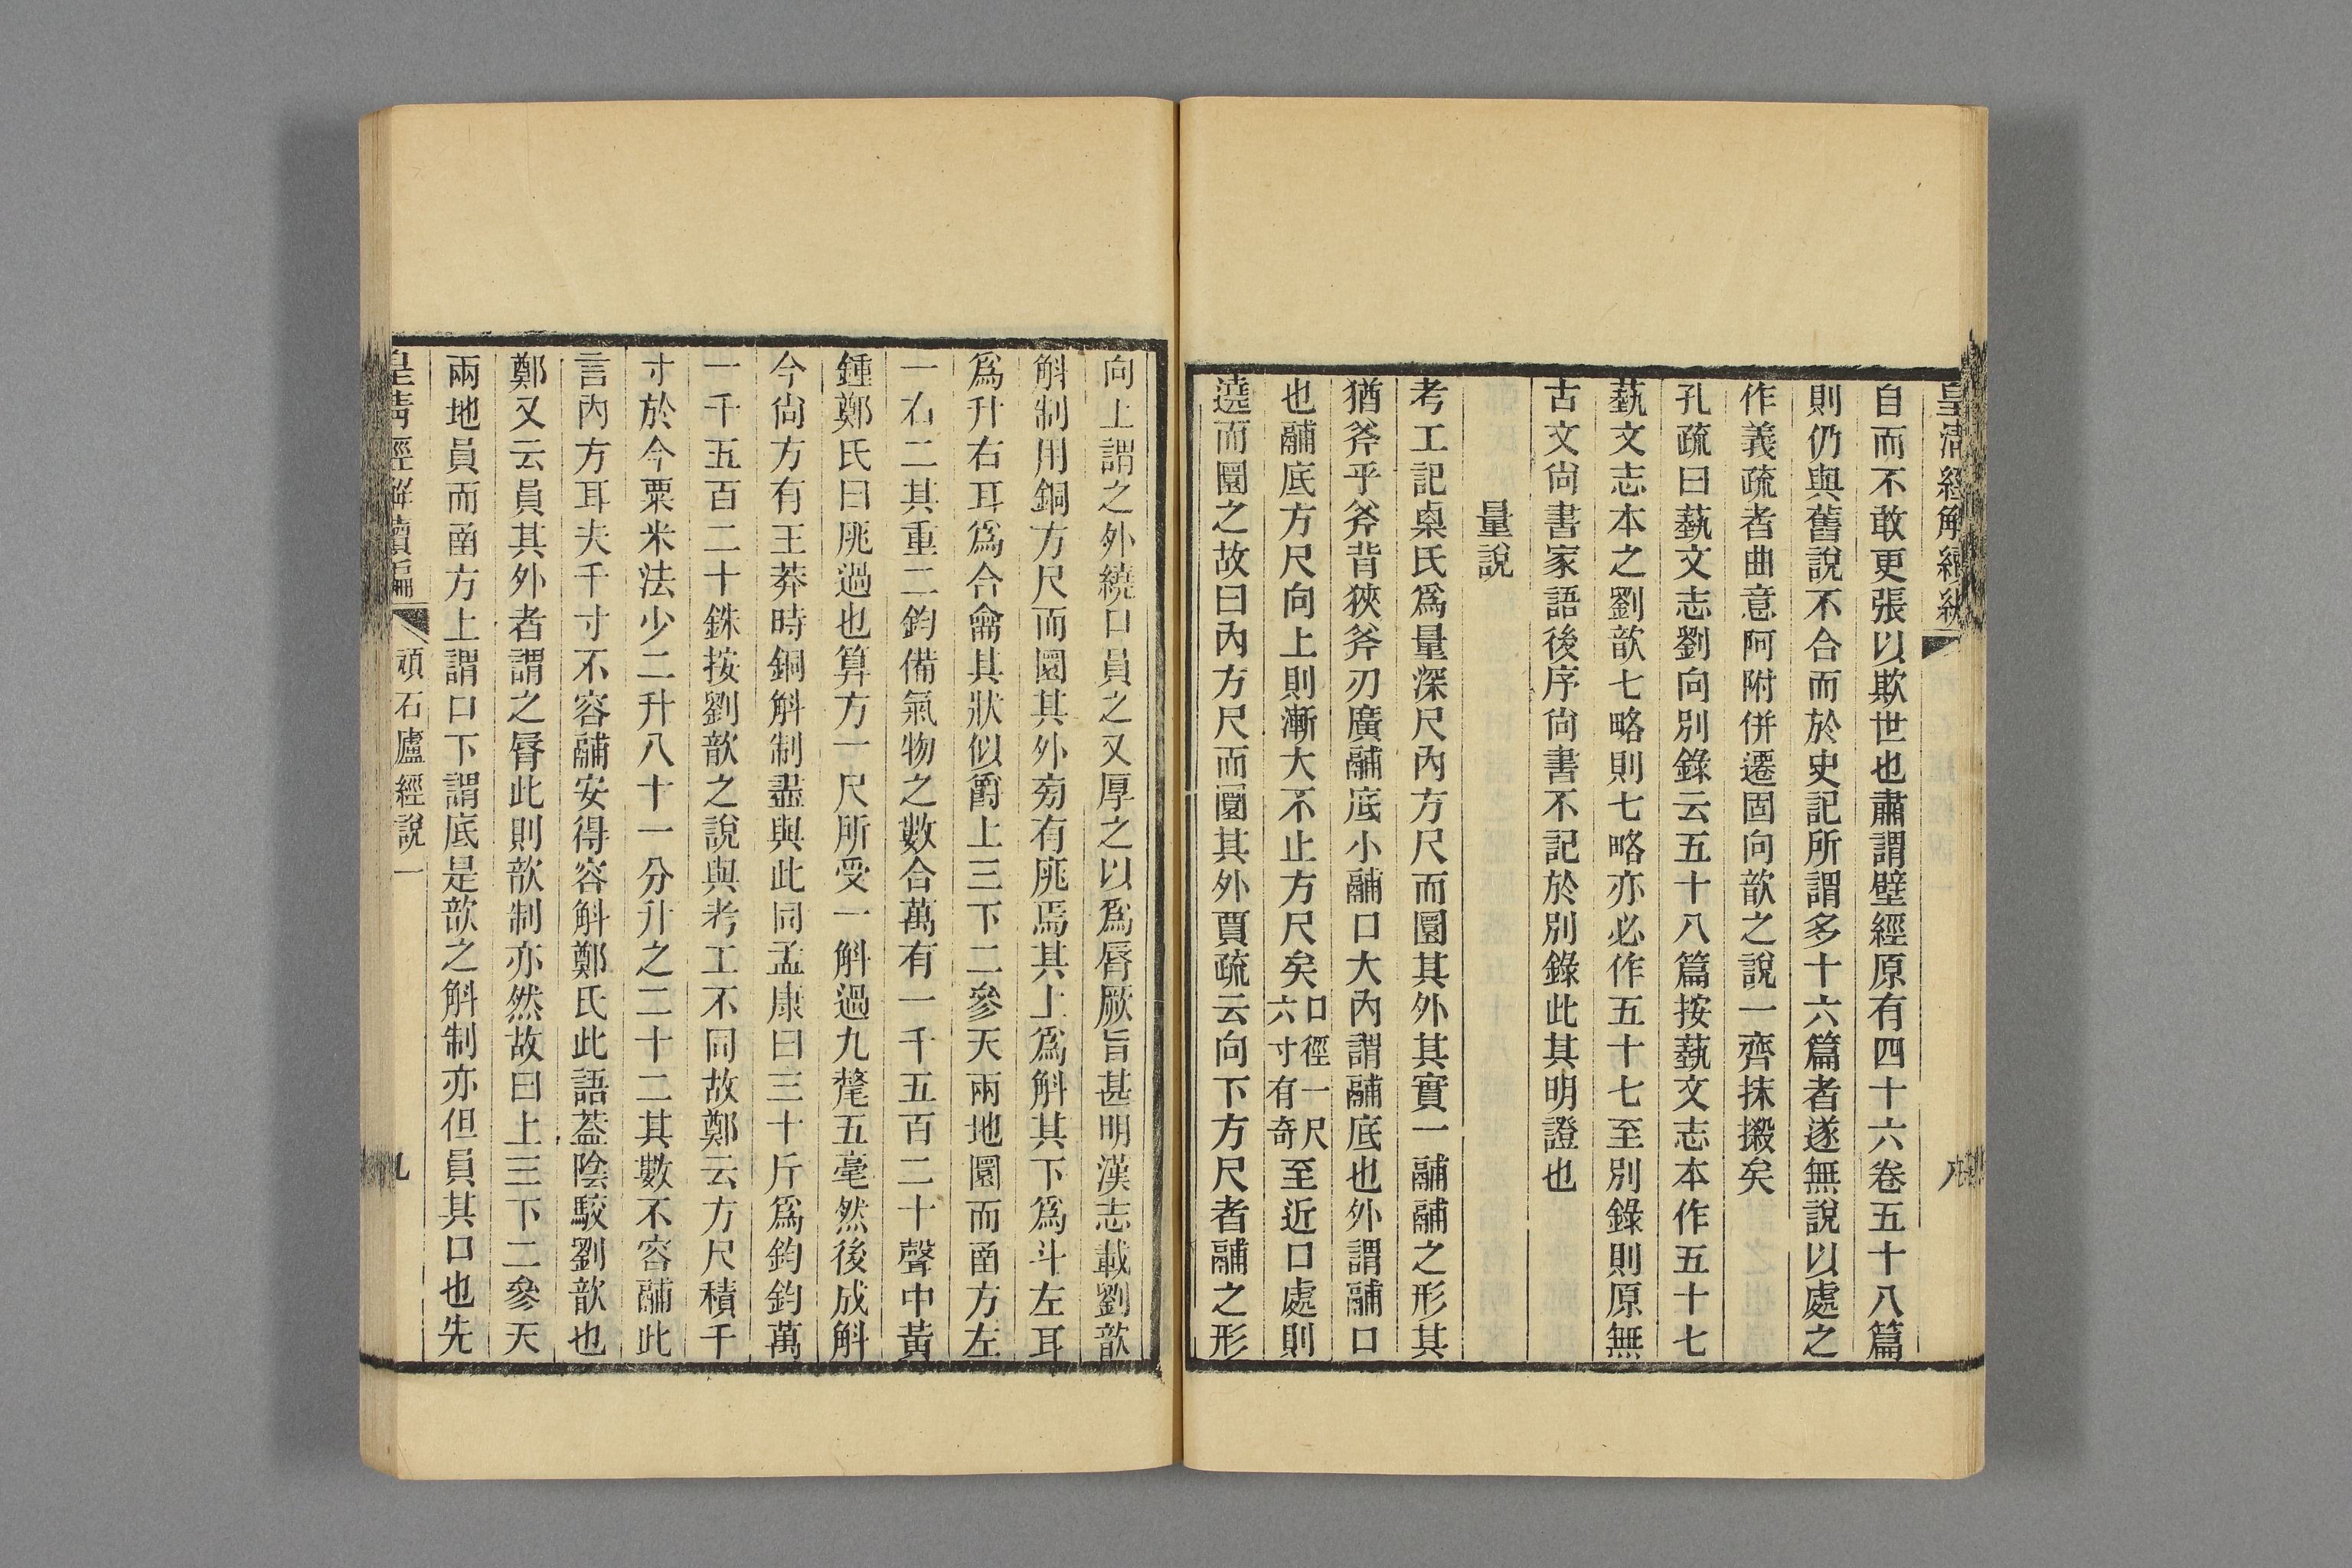 皇清經解續編
八
自而不敢更張以欺世也肅謂壁經原有四十六卷五十八篇
則仍與舊說不合而於史記所謂多十六篇者遂無說以處之
作義疏者曲意阿附併遷固向歆之說一齊抹摋矣
孔疏曰蓺文志劉向別錄云五十八篇按蓺文志本作五十七
蓺文志本之劉歆七略則七略亦必作五十七至別錄則原無
古文尙書家語後序尙書不記於別錄此其明證也
量說
考工記㮚氏爲量深尺內方尺而圜其外其實一鬴鬴之形其
猶斧乎斧背狹斧刃廣鬴底小鬴口大內謂鬴底也外謂鬴口
也鬴底方尺向上則漸大不止方尺矣口徑一尺六寸有奇至近口處則
遶而圜之故曰內方尺而圜其外賈疏云向下方尺者鬴之形
向上謂之外繞口員之又厚之以爲脣厥旨甚明漢志載劉歆
斛制用銅方尺而圜其外旁有庣焉其上爲斛其下爲斗左耳
爲升右耳爲合龠其狀似爵上三下二參天兩地圜而函方左
一右二其重二鈞備氣物之數合萬有一千五百二十聲中黃
鍾鄭氏曰庣過也算方一尺所受一斛過九氂五毫然後成斛
今尙方有王莽時銅斛制盡與此同孟康曰三十斤爲鈞鈞萬
一千五百二十銖按劉歆之說與考工不同故鄭云方尺積千
寸於今粟米法少二升八十一分升之二十二其數不容鬴此
言內方耳夫千寸不容鬴安得容斛鄭氏此語葢陰駮劉歆也
鄭又云員其外者謂之脣此則歆制亦然故曰上三下二參天
兩地員而函方上謂口下謂底是歆之斛制亦但員其口也先
皇清經解續編
頑石廬經說一
九